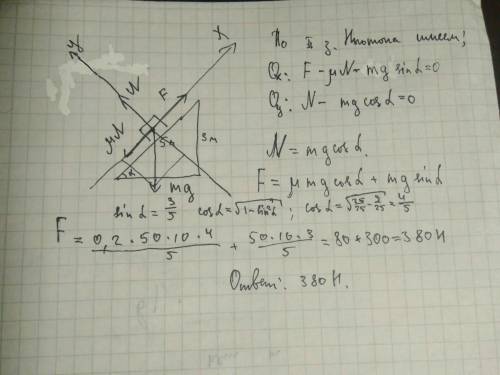 y
x
N
F
μN
5м
3м
α
mg
По II з. Ньютона имеем;
Ox: F - μN - mg sinα = 0
Oy: N - mg cosα = 0
N = mg cosα.
F = μ mg cosα + mg sinα
sinα = 3/5 cosα = √(1 - sin²α) ; cosα = √(25/25 - 9/25) = 4/5
F = 0,2 · 50 · 10 · 4 / 5 + 50 · 10 · 3 / 5 = 80 + 300 = 380 Н
Ответ: 380 Н.